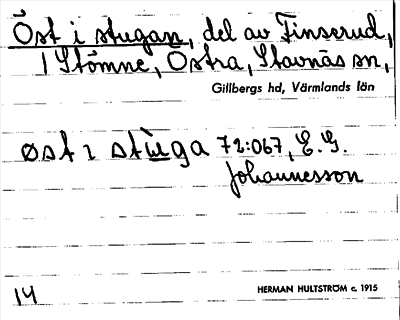 Öst i stugan, del av Finserud,
1 Stömne, Östra, Stavnäs sn,
Gillbergs hd, Värmlands län
øst ı stùga 72:067, E.G.
Johannesson
14
HERMAN HULTSTRÖM c. 1915